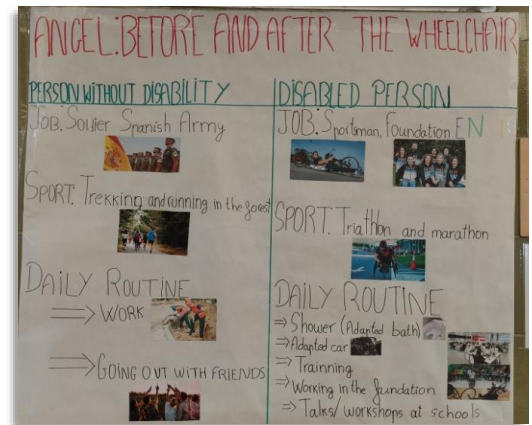 ANGEL: BEFORE AND AFTER THE WHEELCHAIR
PERSON WITHOUT DISABILITY
JOB: Solier Spanish Army
SPORT: Trekking and running in the forest
DAILY ROUTINE
⇒ WORK
⇒ GOING OUT WITH FRIENDS
DISABLED PERSON
JOB: Sportsman, Foundation EN
SPORT: Triathlon and marathon
DAILY ROUTINE
⇒ Shower (Adapted bath)
⇒ Adapted car
⇒ Trainning
⇒ Working in the fundation
⇒ Talks/workshops at schools